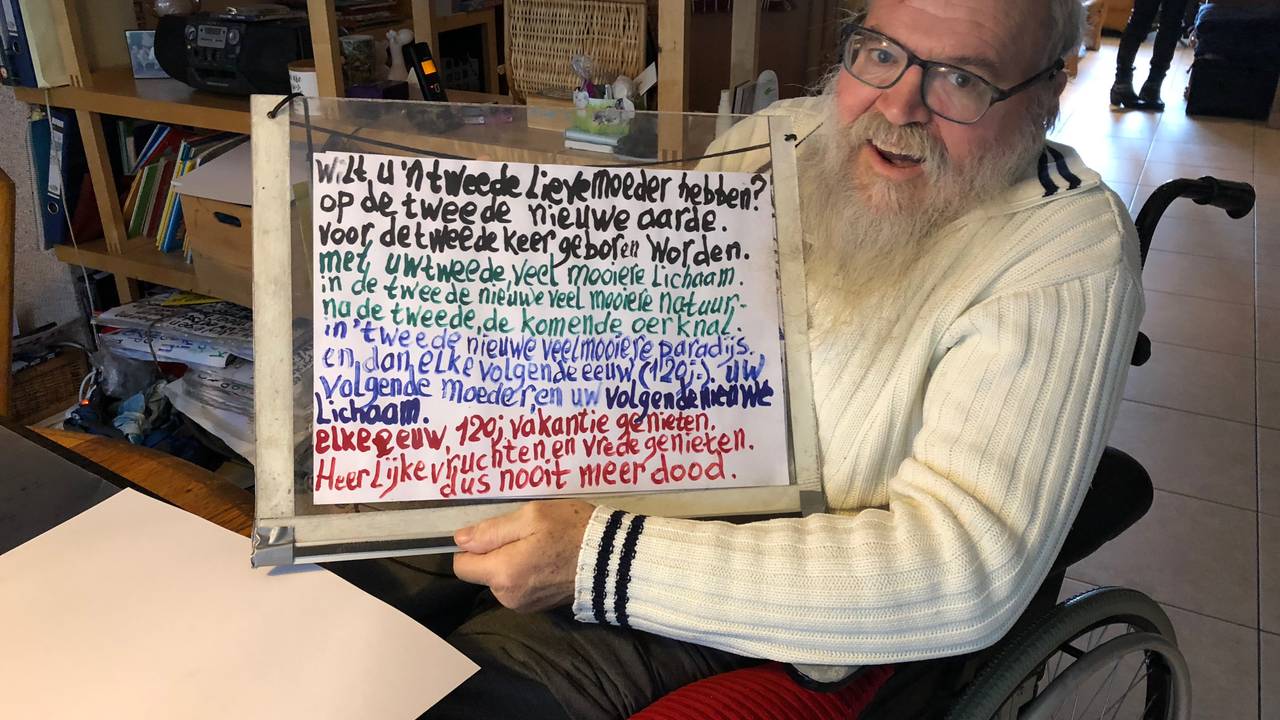 Wilt u 'n tweede Lieve moeder hebben?
op de tweede nieuwe aarde.
voor de tweede keer geboren worden.
met uw tweede, veel mooiere Lichaam.
in de tweede nieuwe veel mooiere natuur-
na de tweede, de komende oerknal.
in 't weede nieuwe veel mooiere paradijs.
en, dan, elke volgende eeuw (120j.). uw
volgende moeder, en uw volgende nieuwe
Lichaam.
elke eeuw, 120j vakantie genieten.
Heerlijke vruchten en vrede genieten.
dus nooit meer dood.